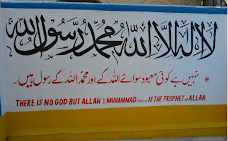 لا اله الا الله محمد رسول الله
نہیں ہے کوئی معبود سوائے اللہ کے اور محمد اللہ کے رسول ہیں۔
THERE IS NO GOD BUT ALLAH & MUHAMMAD IS THE PROPHET OF ALLAH.